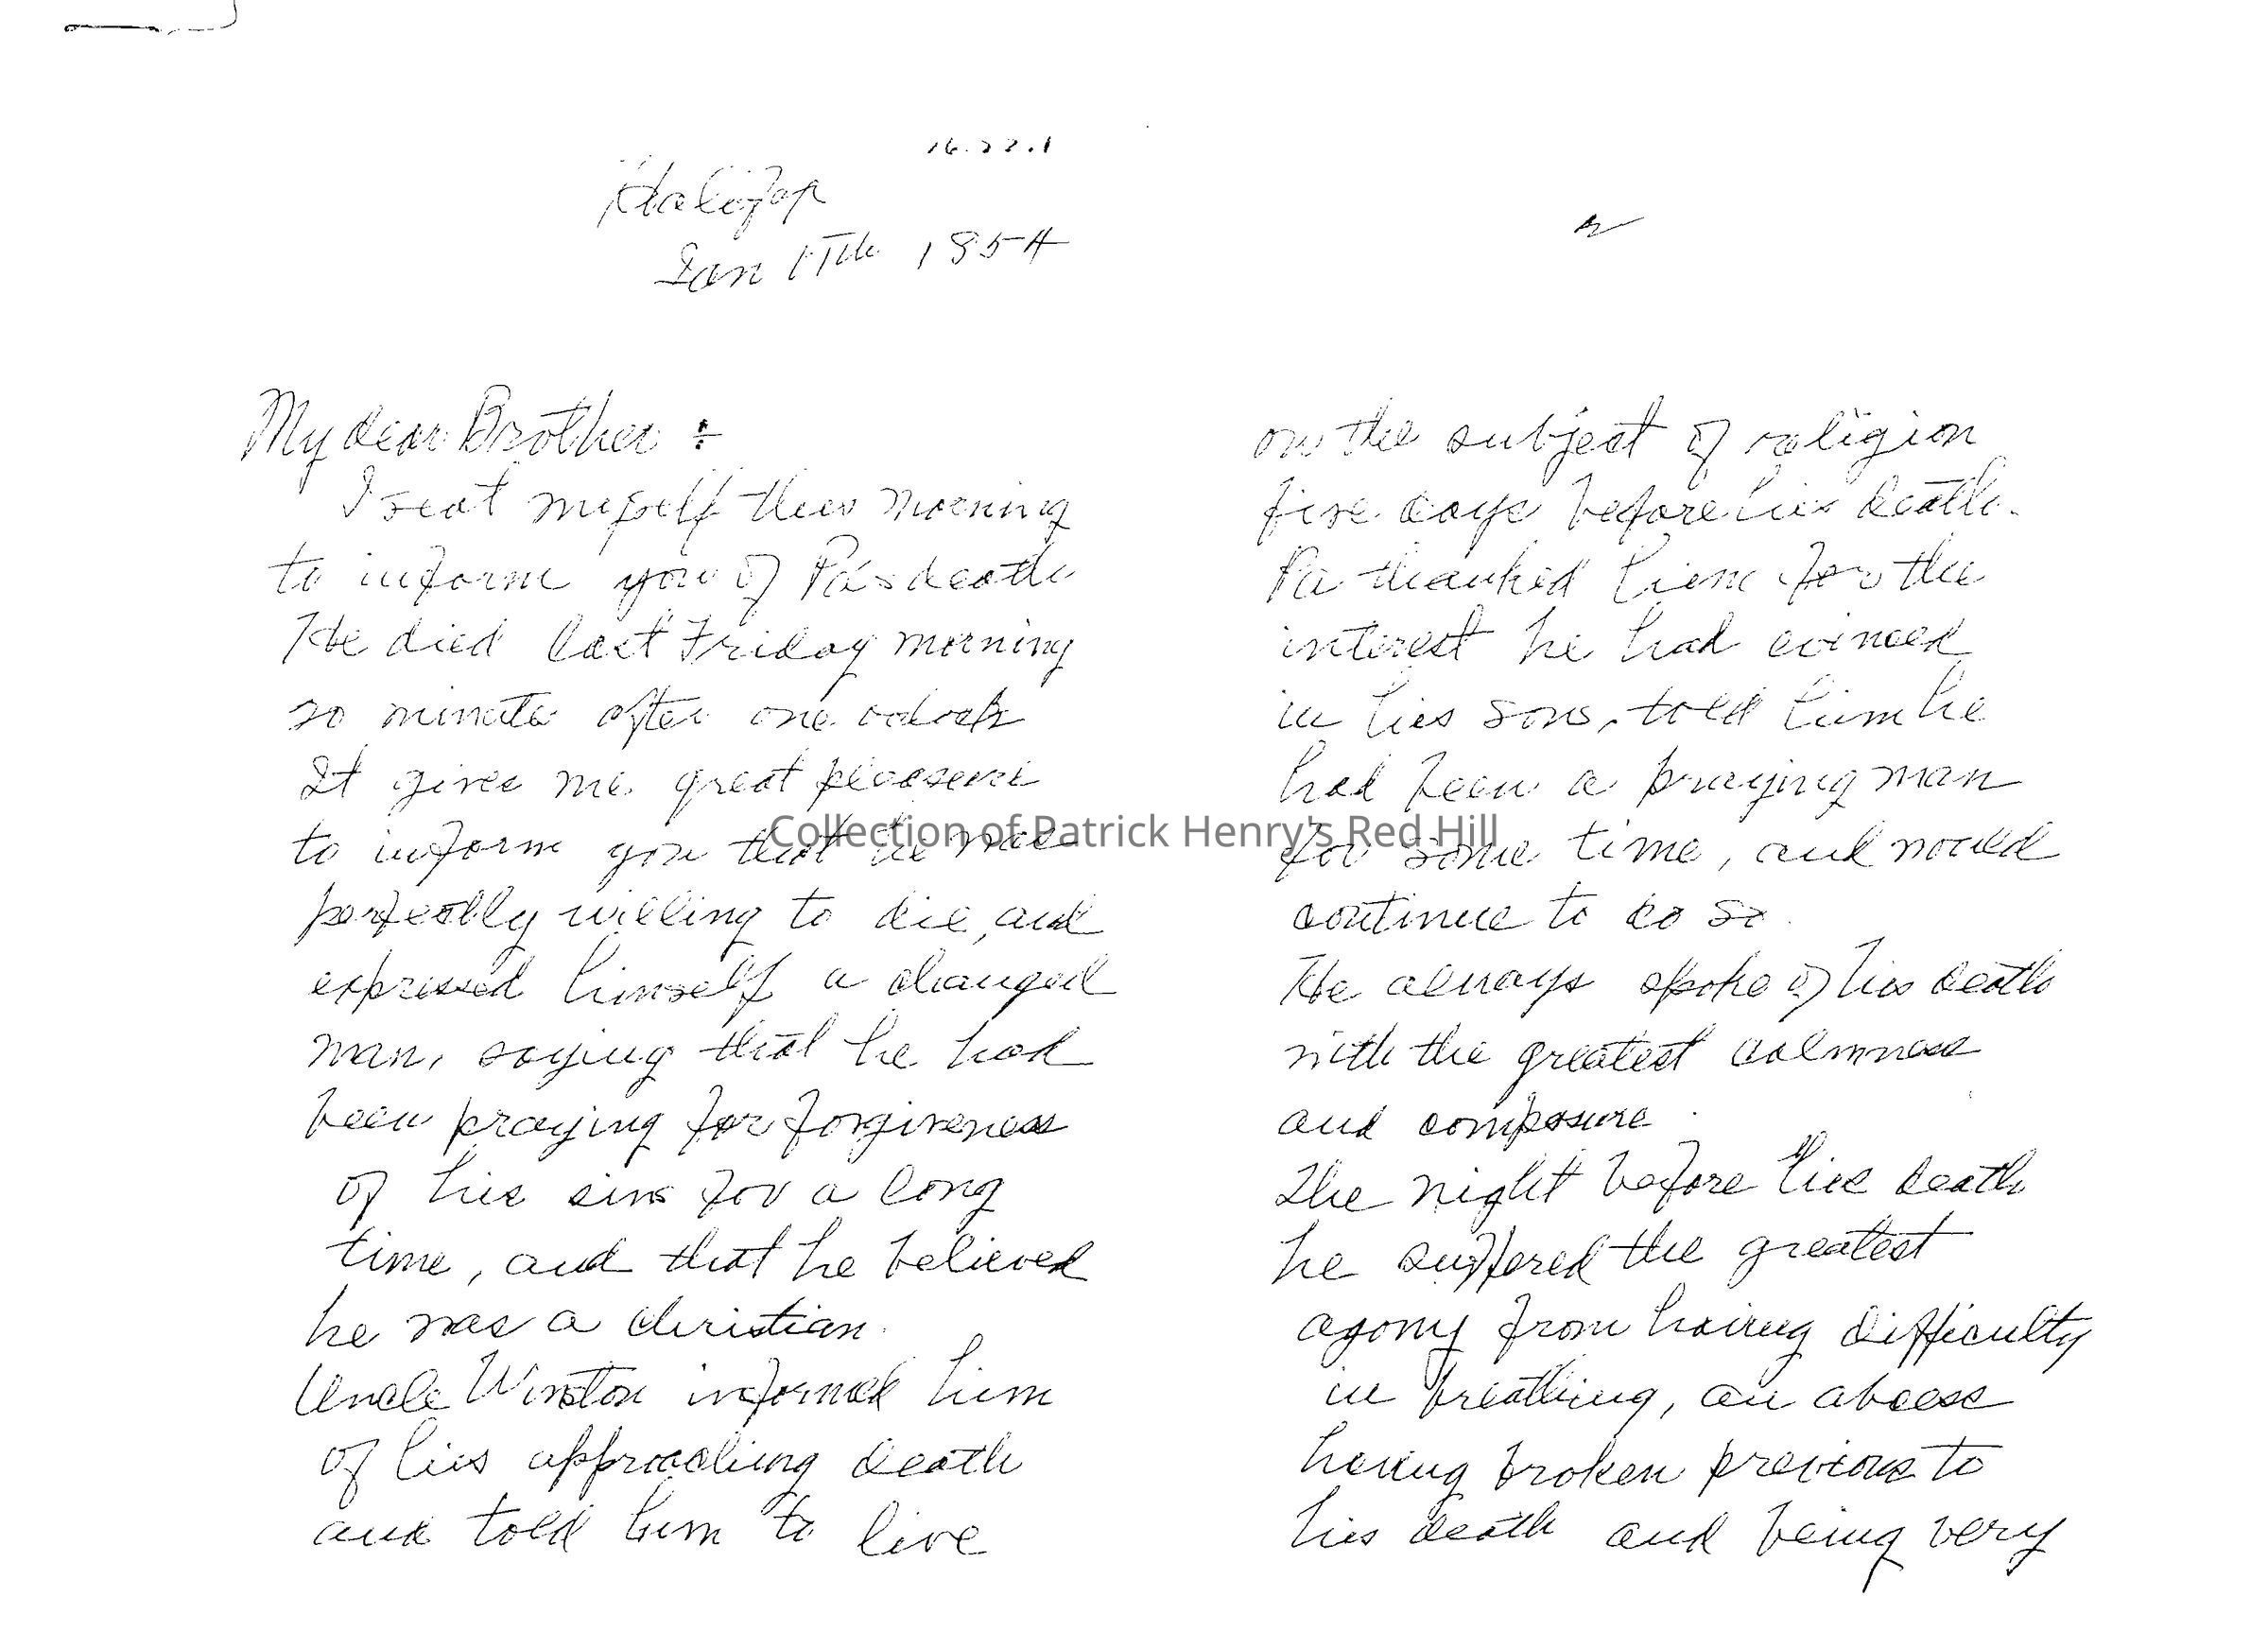 16.22.1
Halifax
Jan 17th 1854
My dear Brother ÷
I seat myself this morning
to inform you of Pa's death
He died last Friday morning
20 minute after one oclock
It gives me great pleasure
to inform you that he was
perfectly willing to die, and
expressed himself a changed
man, saying that he had
been praying for forgiveness
of his sins for a long
time, and that he believed
he was a christian.
Uncle Winston informed him
of his approaching death
and told him to live
2
on the subject of religion
five days before his death.
Pa thanked him for the
interest he had evinced
in his sons, told him he
had been a praying man
for some time, and would
continue to do so.
He always spoke of his death
with the greatest calmness
and composure.
The night before his death
he suffered the greatest
agony from having difficulty
in breathing, an abcess
having broken previous to
his death and being very
Collection of Patrick Henry's Red Hill